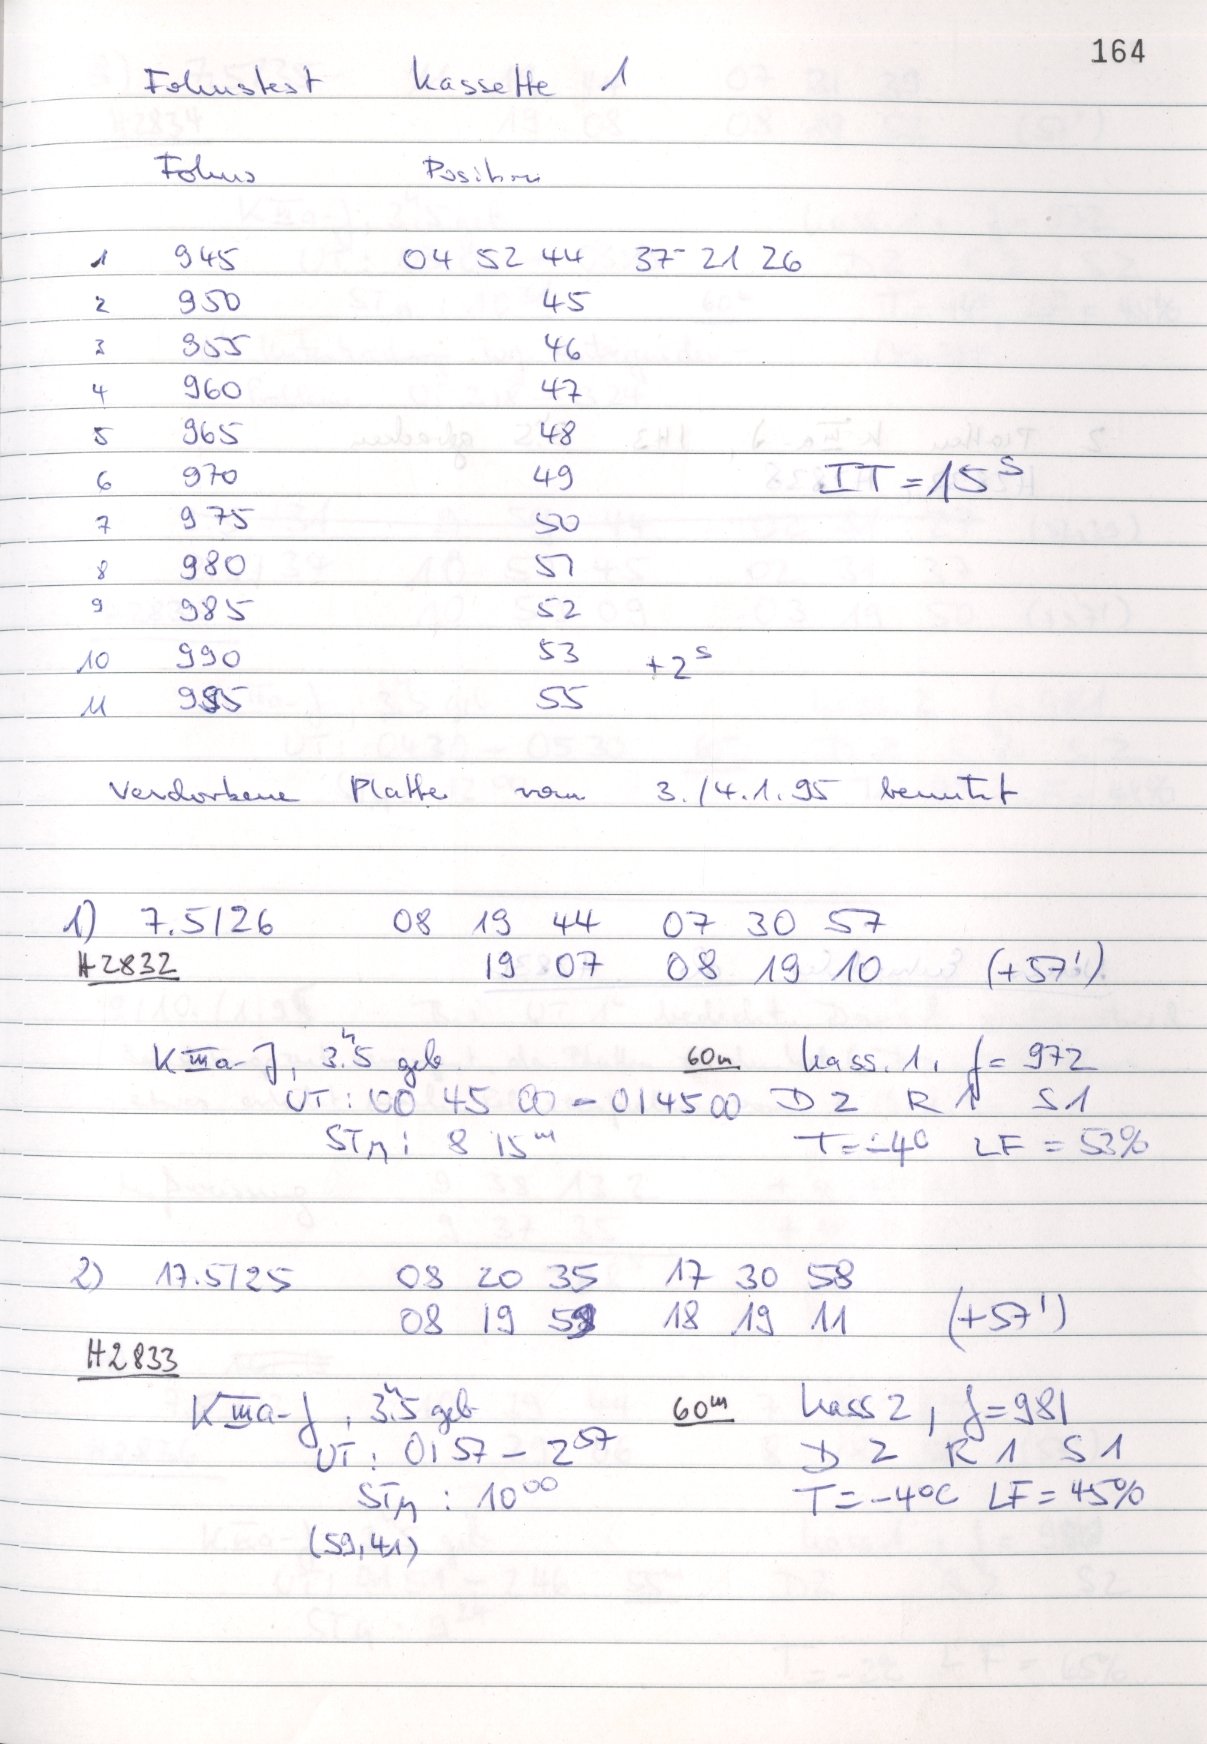 164
Fokustest Kassette 1
Fokus Position
1 945 04 52 44 37 21 26
2 950 45
3 955 46
4 960 47
5 965 48
6 970 49 IT = 15ˢ
7 975 50
8 980 51
9 985 52
10 990 53 +2ˢ
11 995 55
Verdorbene Platte vom 3./4.1.95 benutzt
1) 7.5/26 08 19 44 07 30 57
H2832 19 07 08 19 10 (+57')
KIIIa-J, 3ʰ5 geb. 60m Kass. 1, f = 972
UT: 00 45 00 - 014500 D 2 R 1 S 1
STA: 8 15ᵐ T = -4° LF = 53%
2) 17.5/25 08 20 35 17 30 58
08 19 59 18 19 11 (+57')
H2833
KIIIa-J, 3ʰ5 geb 60ᵐ Kass 2, f = 981
UT: 0157 - 2⁵⁷ D 2 R 1 S 1
STA: 10⁰⁰ T = -4°C LF = 45%
(59,41)